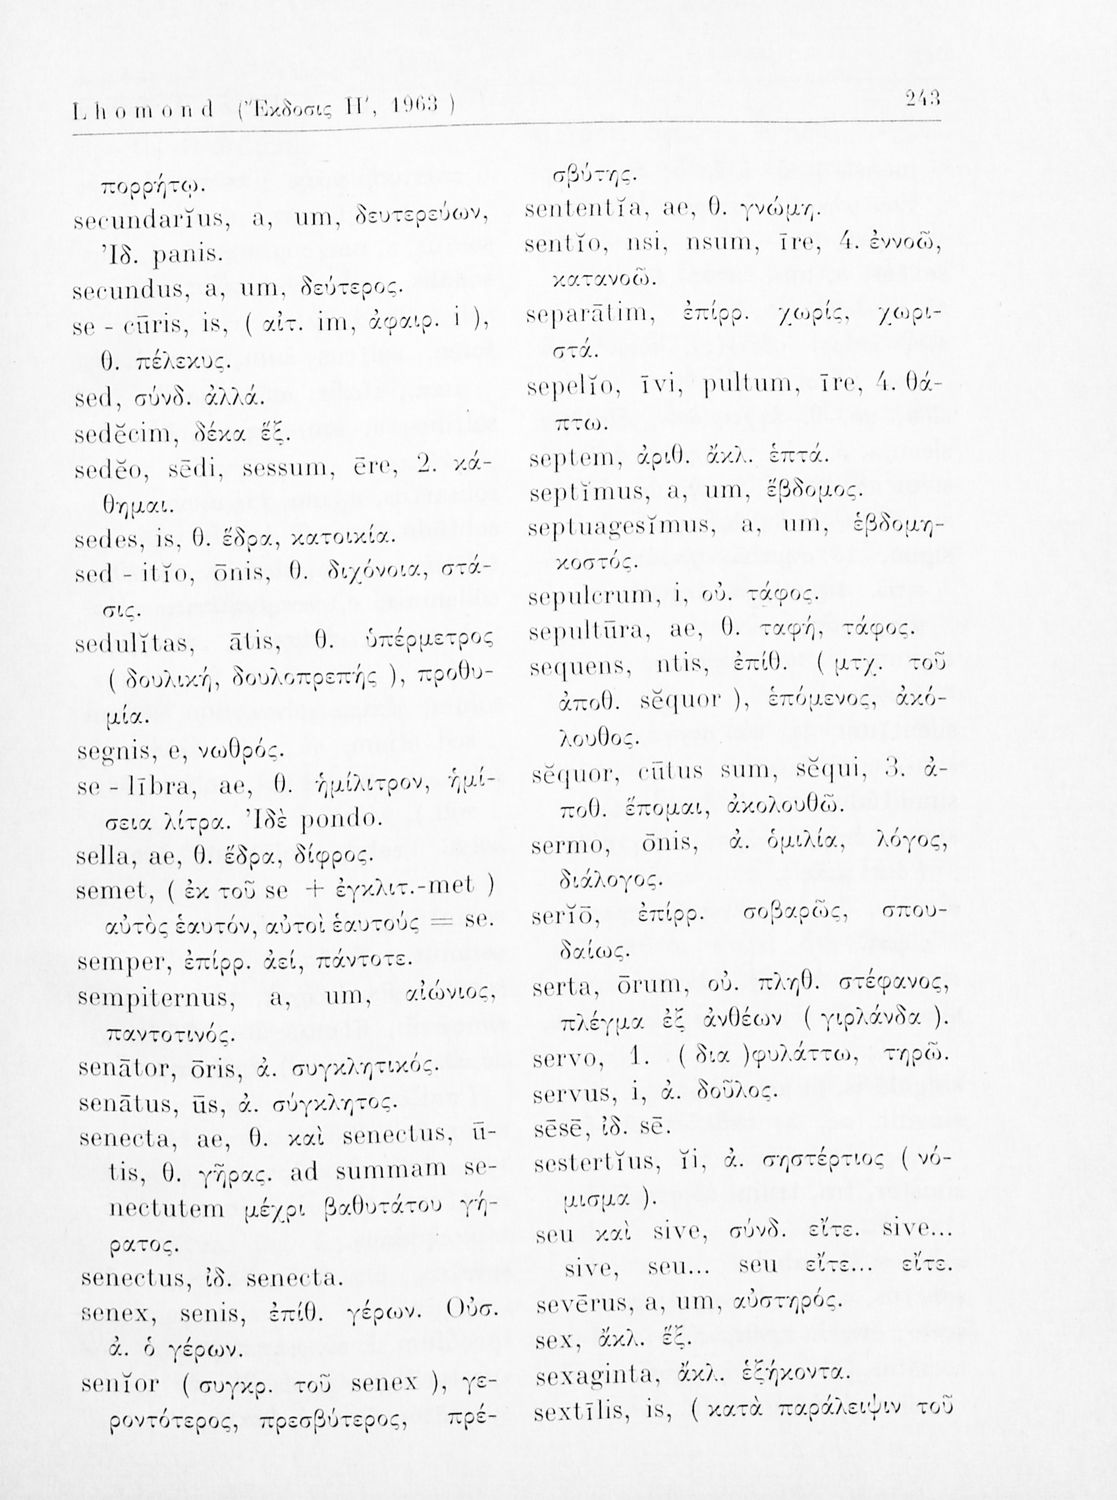 Lhomond (Ἔκδοσις Η′, 1963)
243
πορρήτῳ.
secundarĭus, a, um, δευτερεύων,
Ἰδ. panis.
secundus, a, um, δεύτερος.
se - cūris, is, ( αἰτ. im, ἀφαιρ. i ),
θ. πέλεκυς.
sed, σύνδ. ἀλλά.
sedĕcim, δέκα ἕξ.
sedĕo, sēdi, sessum, ēre, 2. κά-
θημαι.
sedes, is, θ. ἕδρα, κατοικία.
sed - itĭo, ōnis, θ. διχόνοια, στά-
σις.
sedulĭtas, ātis, θ. ὑπέρμετρος
( δουλική, δουλοπρεπής ), προθυ-
μία.
segnis, e, νωθρός.
se - lībra, ae, θ. ἡμίλιτρον, ἡμί-
σεια λίτρα. Ἰδὲ pondo.
sella, ae, θ. ἕδρα, δίφρος.
semet, ( ἐκ τοῦ se + ἐγκλιτ.-met )
αὐτὸς ἑαυτόν, αὐτοὶ ἑαυτούς = se.
semper, ἐπίρρ. ἀεί, πάντοτε.
sempiternus, a, um, αἰώνιος,
παντοτινός.
senātor, ōris, ἀ. συγκλητικός.
senātus, ūs, ἀ. σύγκλητος.
senecta, ae, θ. καὶ senectus, ū-
tis, θ. γῆρας. ad summam se-
nectutem μέχρι βαθυτάτου γή-
ρατος.
senectus, ἰδ. senecta.
senex, senis, ἐπίθ. γέρων. Οὐσ.
ἀ. ὁ γέρων.
senĭor ( συγκρ. τοῦ senex ), γε-
ροντότερος, πρεσβύτερος, πρέ-
σβύτης.
sententĭa, ae, θ. γνώμη.
sentĭo, nsi, nsum, īre, 4. ἐννοῶ,
κατανοῶ.
separātim, ἐπίρρ. χωρίς, χωρι-
στά.
sepelĭo, īvi, pultum, īre, 4. θά-
πτω.
septem, ἀριθ. ἄκλ. ἑπτά.
septĭmus, a, um, ἕβδομος.
septuagesĭmus, a, um, ἑβδομη-
κοστός.
sepulcrum, i, οὐ. τάφος.
sepultūra, ae, θ. ταφή, τάφος.
sequens, ntis, ἐπίθ. ( μτχ. τοῦ
ἀποθ. sĕquor ), ἑπόμενος, ἀκό-
λουθος.
sĕquor, cūtus sum, sĕqui, 3. ἀ-
ποθ. ἕπομαι, ἀκολουθῶ.
sermo, ōnis, ἀ. ὁμιλία, λόγος,
διάλογος.
serĭō, ἐπίρρ. σοβαρῶς, σπου-
δαίως.
serta, ōrum, οὐ. πληθ. στέφανος,
πλέγμα ἐξ ἀνθέων ( γιρλάνδα ).
servo, 1. ( δια )φυλάττω, τηρῶ.
servus, i, ἀ. δοῦλος.
sēsē, ἰδ. sē.
sestertĭus, ĭi, ἀ. σηστέρτιος ( νό-
μισμα ).
seu καὶ sive, σύνδ. εἴτε. sive...
sive, seu... seu εἴτε... εἴτε.
sevērus, a, um, αὐστηρός.
sex, ἄκλ. ἕξ.
sexaginta, ἄκλ. ἑξήκοντα.
sextīlis, is, ( κατὰ παράλειψιν τοῦ